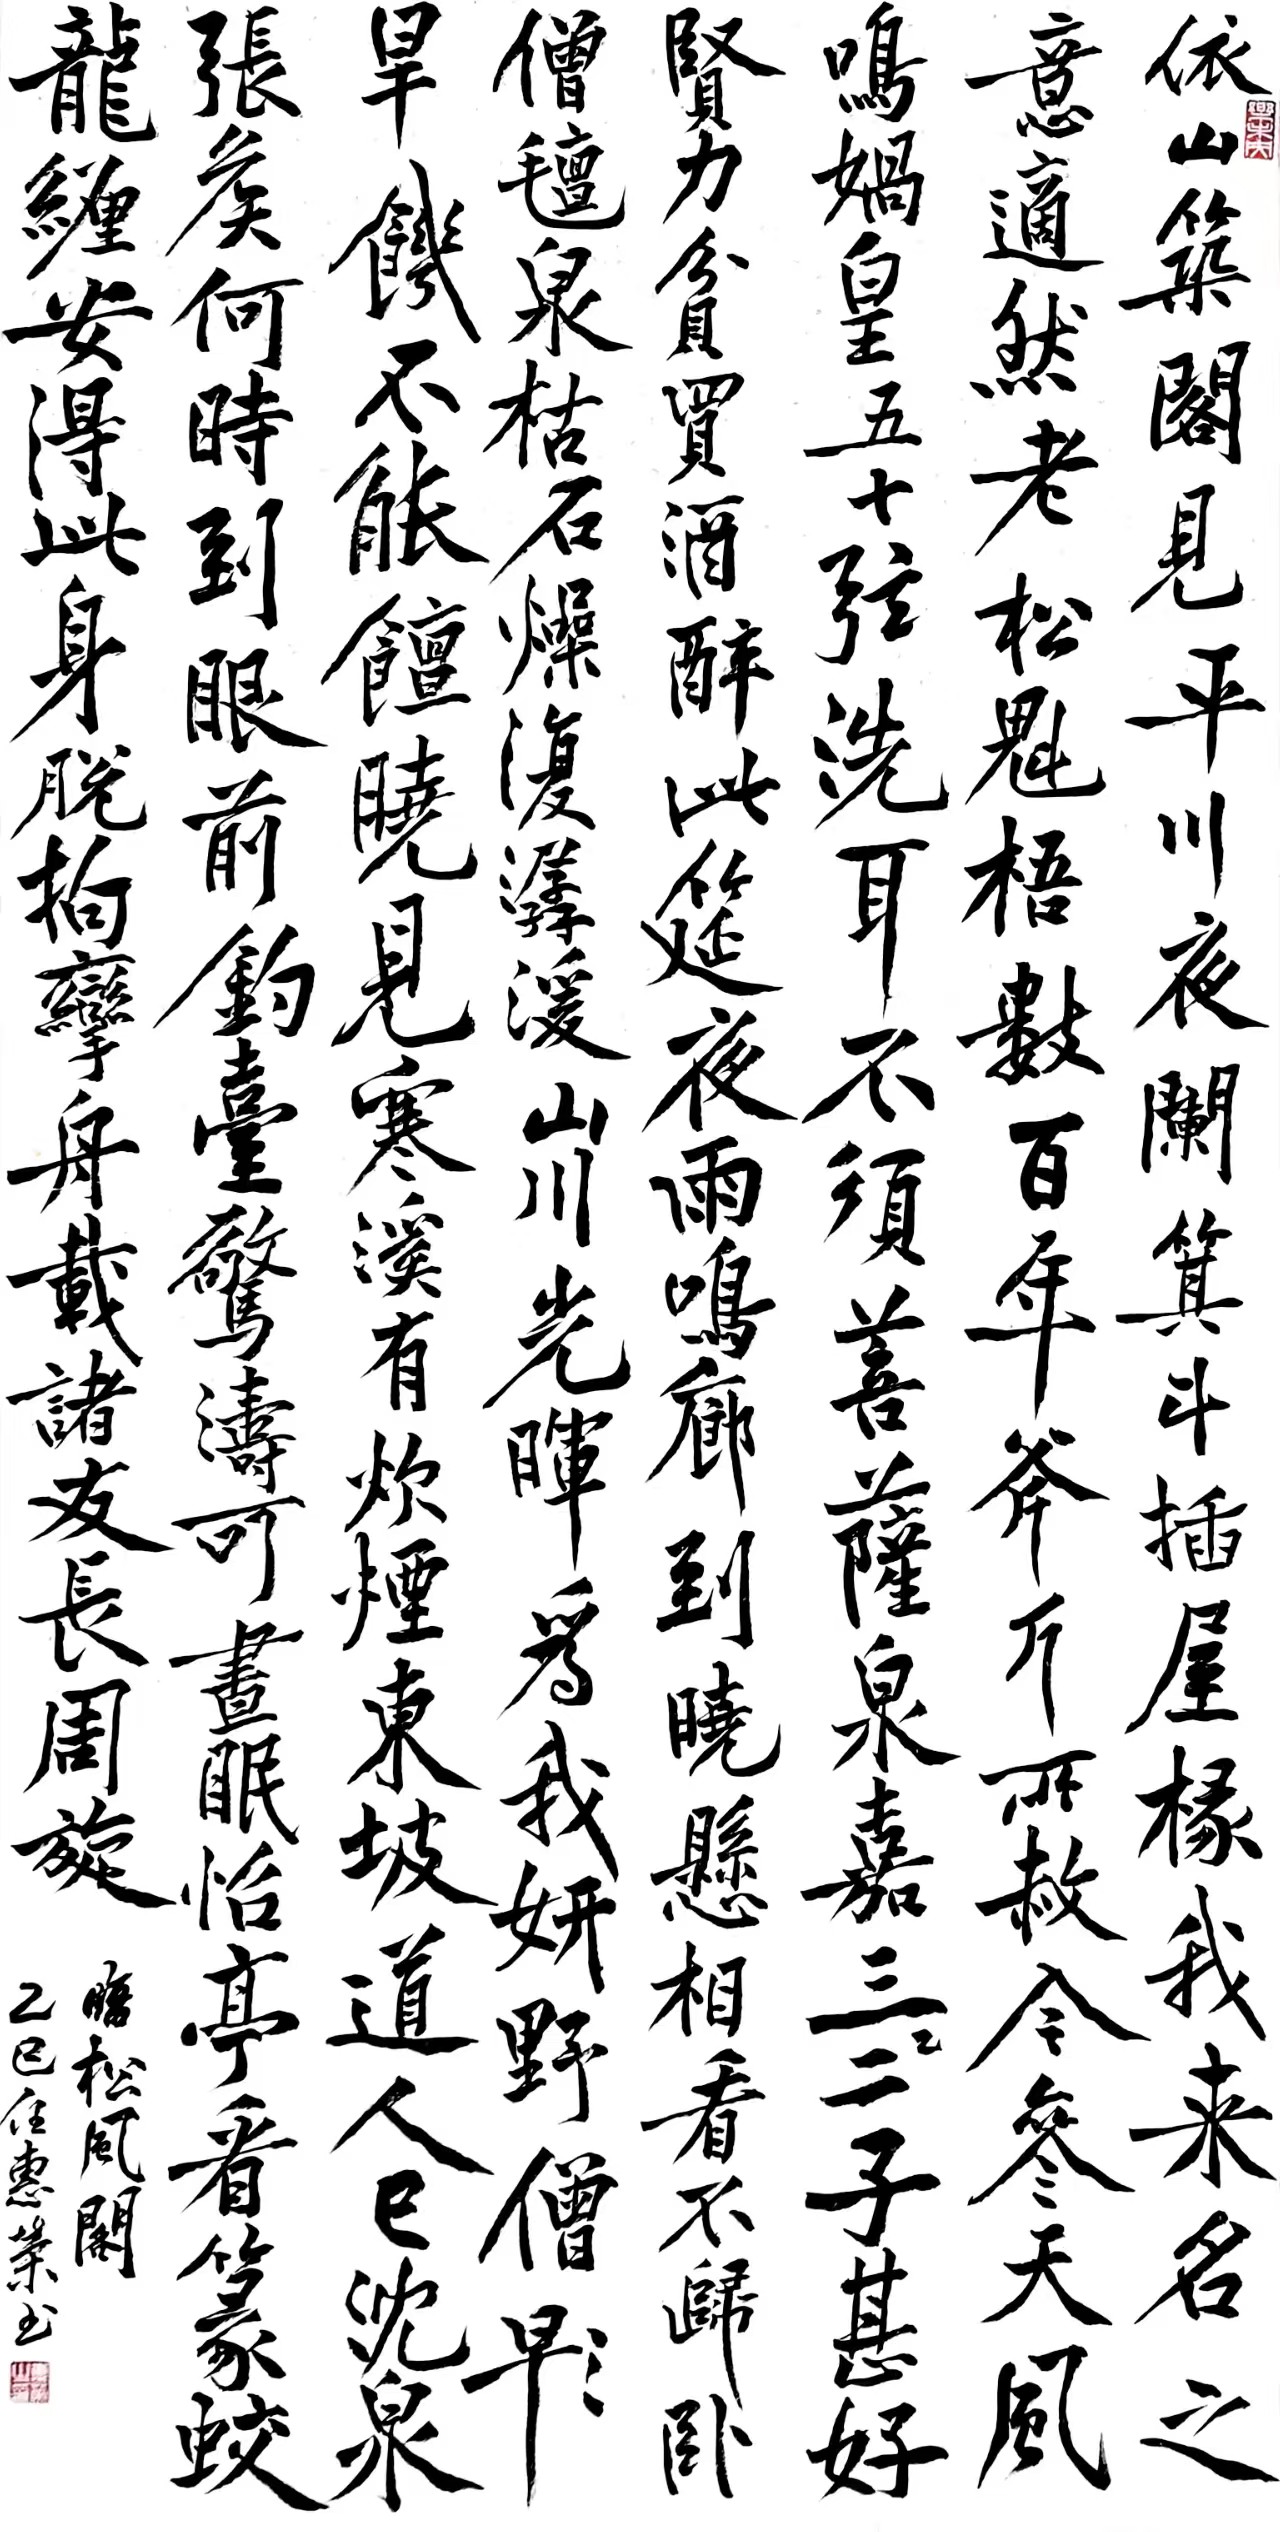 依山築閣見平川夜闌箕斗插屋椽我来名之
意適然老松魁梧數百年斧斤所赦今參天風
鳴媧皇五十弦洗耳不須菩薩泉嘉三二子甚好
賢力貧買酒醉此筵夜雨鳴廊到曉懸相看不歸臥
僧氈泉枯石燥復潺湲山川光暉為我妍野僧早
旱饑不能饘曉見寒溪有炊煙東坡道人已沈泉
張矦何時到眼前釣臺驚濤可晝眠怡亭看篆蛟
龍纏安得此身脫拘攣舟載諸友長周旋
松風閣
乙巳任惠榮书